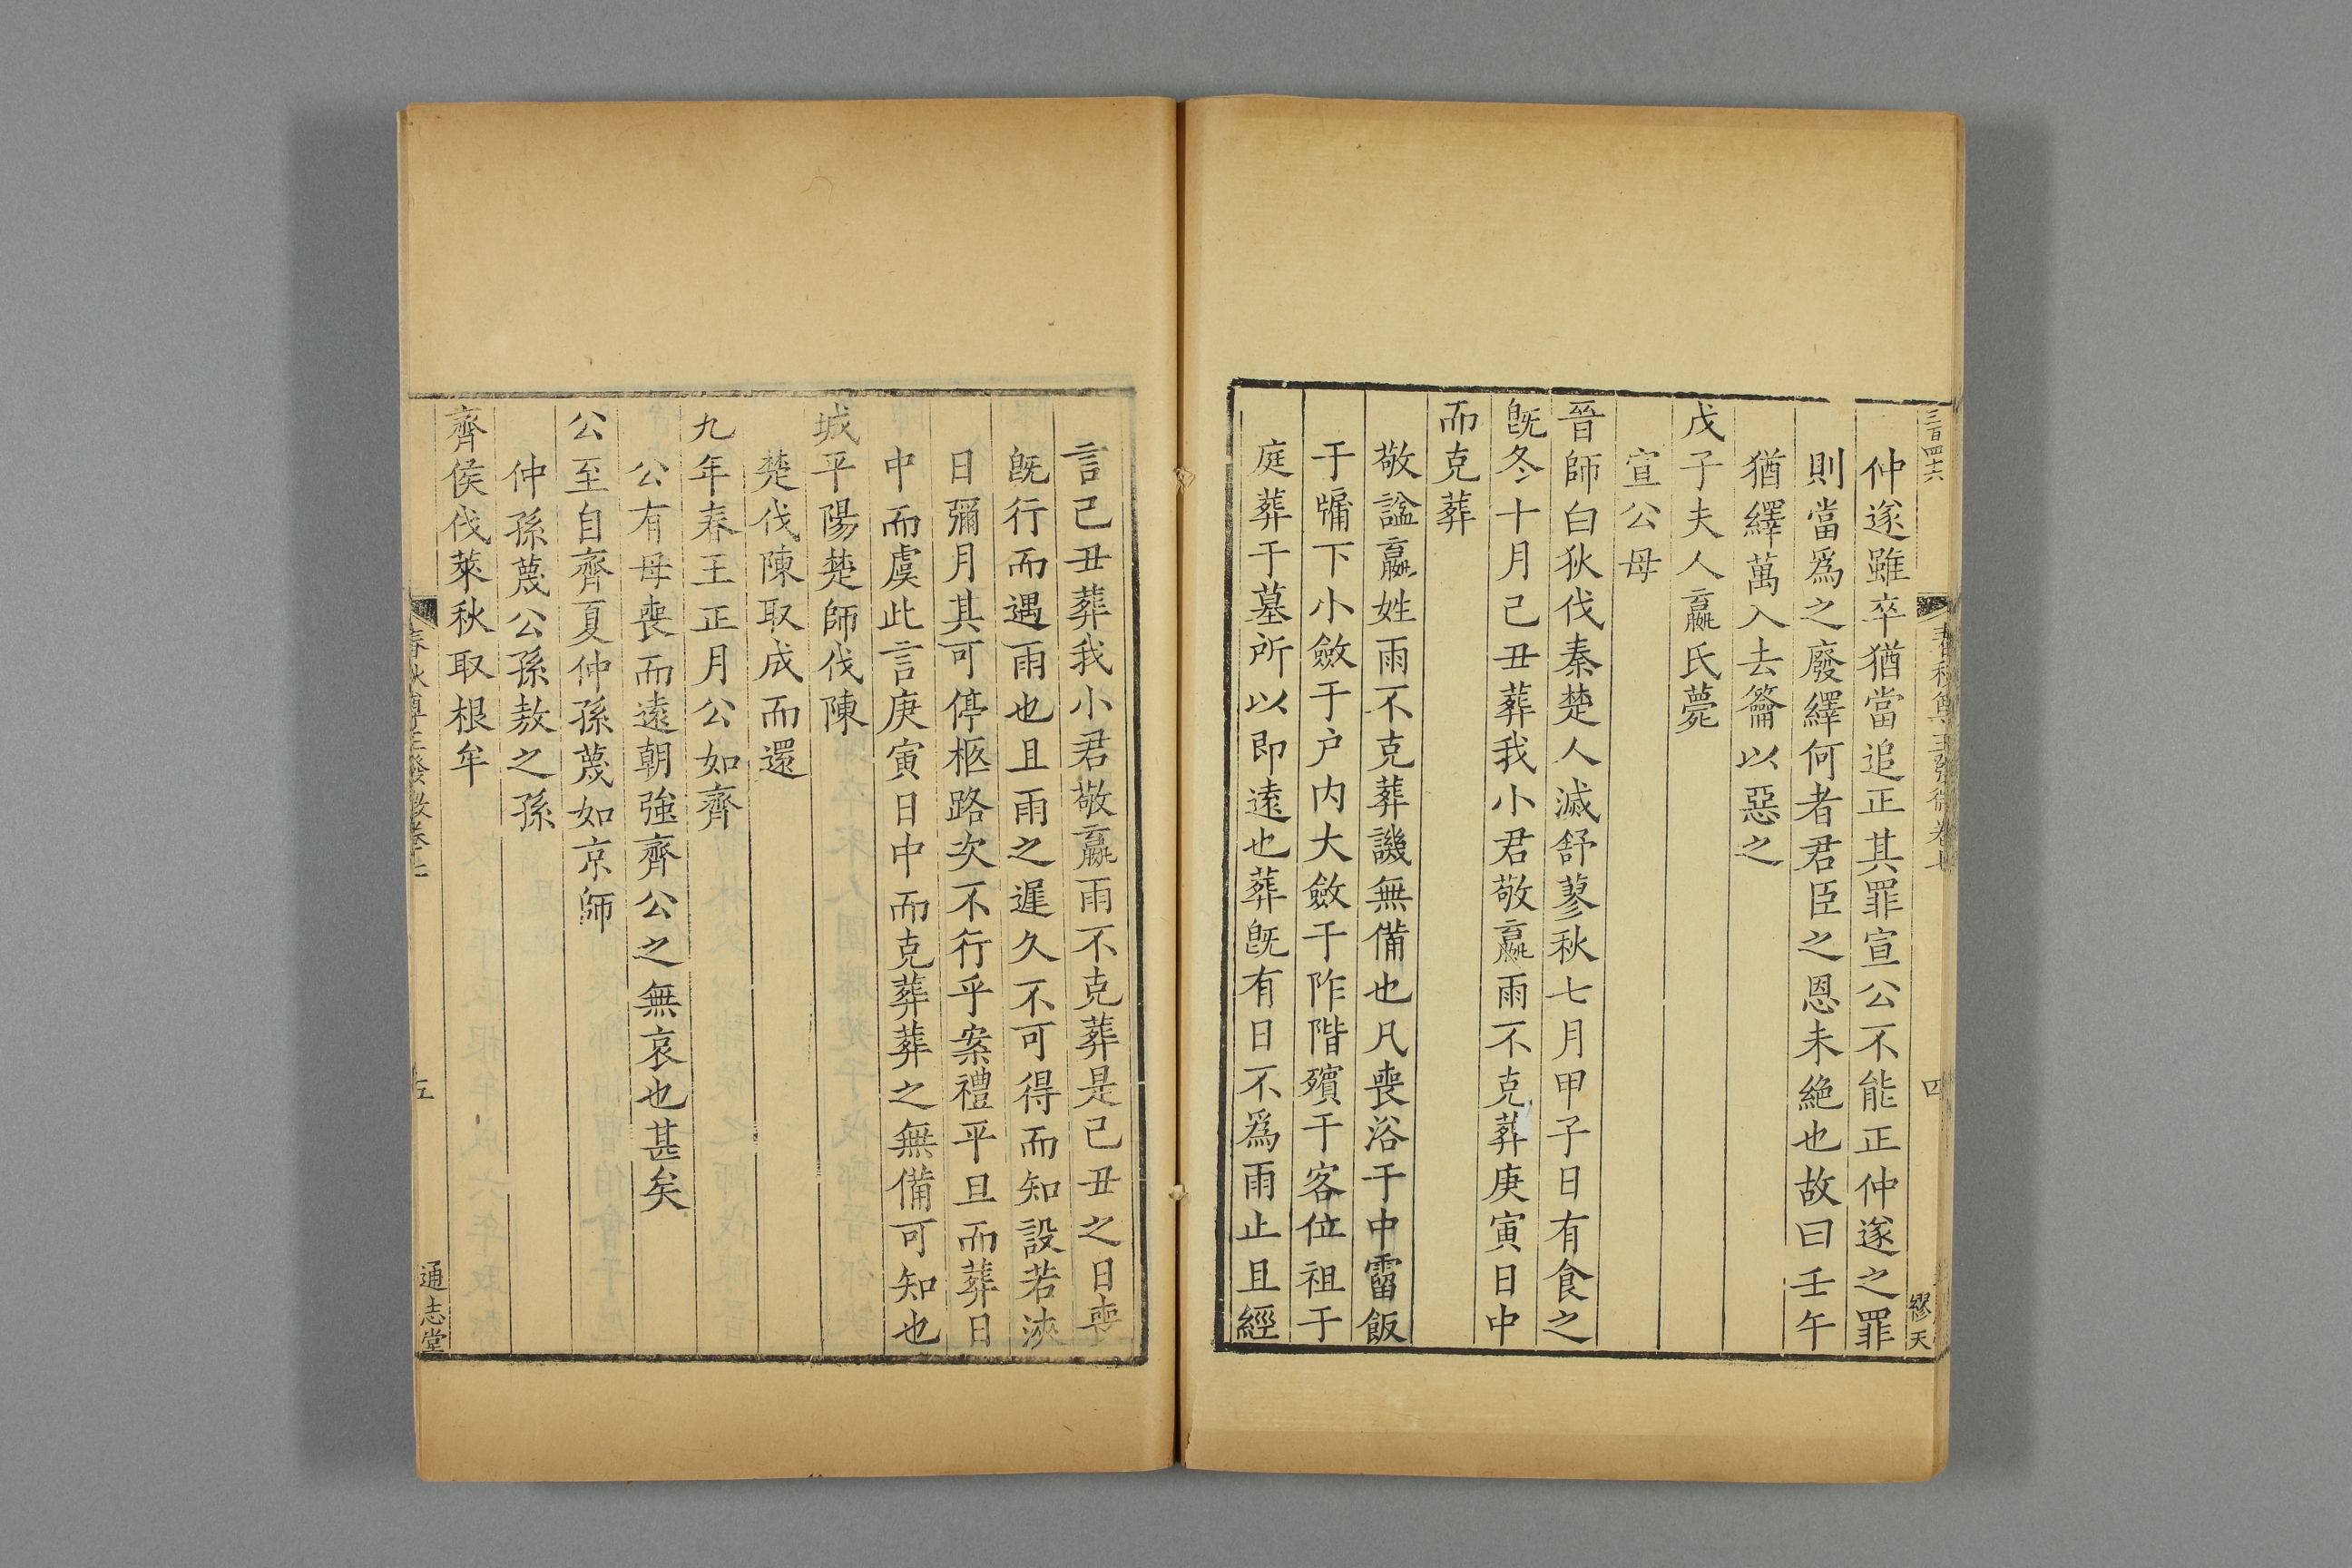 三百四六
四
繆天
仲遂雖卒猶當追正其罪宣公不能正仲遂之罪
則當爲之廢繹何者君臣之恩未絶也故曰壬午
猶繹萬入去籥以惡之
戊子夫人嬴氏薨
宣公母
晉師白狄伐秦楚人滅舒蓼秋七月甲子日有食之
旣冬十月己丑葬我小君敬嬴雨不克葬庚寅日中
而克葬
敬謚嬴姓雨不克葬譏無備也凡喪浴于中霤飯
于牖下小斂于户内大斂于阼階殯于客位祖于
庭葬于墓所以即遠也葬旣有日不爲雨止且經
言己丑葬我小君敬嬴雨不克葬是己丑之日喪
旣行而遇雨也且雨之遲久不可得而知設若浹
日彌月其可停柩路次不行乎案禮平旦而葬日
中而虞此言庚寅日中而克葬葬之無備可知也
城平陽楚師伐陳
楚伐陳取成而還
九年春王正月公如齊
公有母喪而遠朝強齊公之無哀也甚矣
公至自齊夏仲孫蔑如京師
仲孫蔑公孫敖之孫
齊侯伐萊秋取根牟
春秋尊王發微卷七
五
通志堂